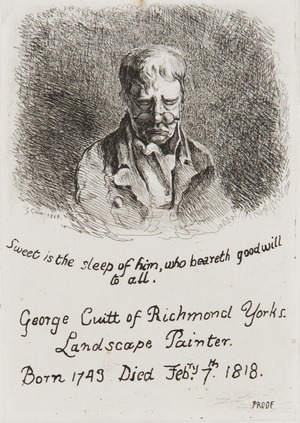 G. Cuitt 1818.
Sweet is the sleep of him, who beareth good will
to all.
George Cuitt of Richmond Yorks.
Landscape Painter.
Born 1743 Died Feb.ry 7.th 1818.
PROOF